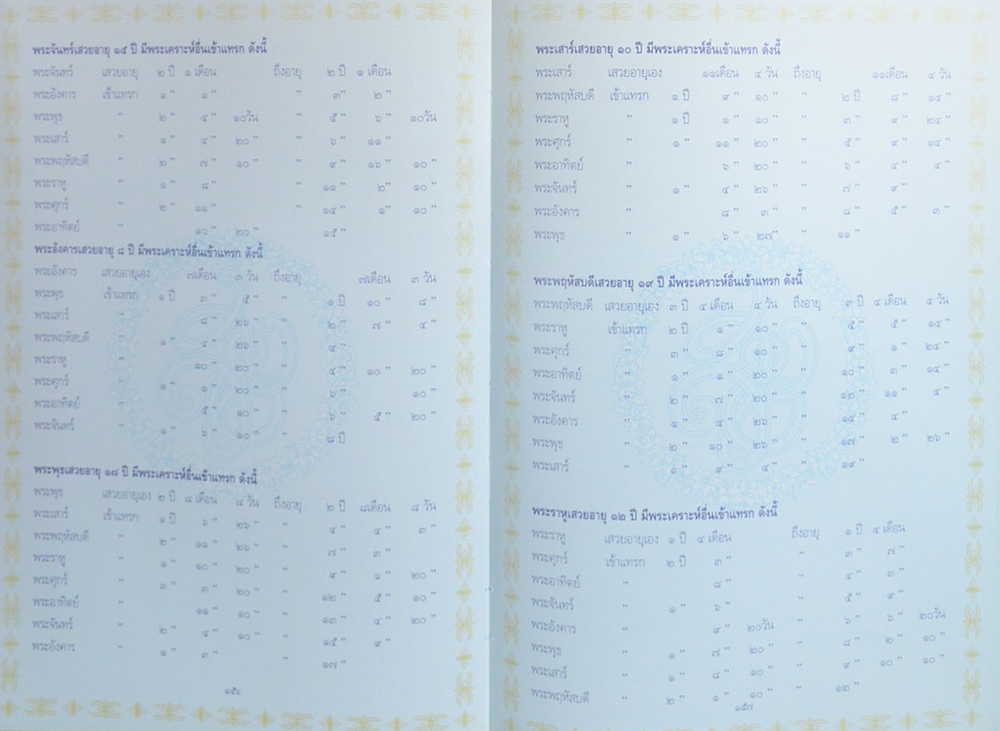 พระจันทร์เสวยอายุ ๑๕ ปี มีพระเคราะห์อื่นเข้าแทรก ดังนี้
พระจันทร์ เสวยอายุ ๒ ปี ๑ เดือน ถึงอายุ ๒ ปี ๑ เดือน
พระอังคาร เข้าแทรก ๑ " ๑ " " ๓" ๒ "
พระพุธ " ๒ " ๔ " ๑๐วัน " ๕ " ๖ " ๑๐วัน
พระเสาร์ " ๑ " ๔ " ๒๐ " " ๖ " ๑๑ "
พระพฤหัสบดี " ๒ " ๗ " ๑๐ " " ๙ " ๑๖ " ๑๐ "
พระราหู " ๑ " ๘ " " ๑๑ " ๒" ๑๐ "
พระศุกร์ " ๒ " ๑๑ " " ๑๔ " ๑" ๑๐ "
พระอาทิตย์ " ๑๐ " ๒๐ " " ๑๕ "
พระอังคารเสวยอายุ ๘ ปี มีพระเคราะห์อื่นเข้าแทรก ดังนี้
พระอังคาร เสวยอายุเอง ๗เดือน ๓ วัน ถึงอายุ ๗เดือน ๓ วัน
พระพุธ เข้าแทรก ๑ ปี ๓ " ๕ " " ๑ ปี ๑๐ " ๘ "
พระเสาร์ " ๘ " ๒๖ " " ๒ " ๗ " ๔ "
พระพฤหัสบดี " ๑ " ๔ " ๒๖ " " ๔ "
พระราหู " ๑๐ " ๒๐ " " ๔ " ๑๐ " ๒๐ "
พระศุกร์ " ๑ " ๑ " ๒๐ " " ๖ " ๑๐ "
พระอาทิตย์ " ๕ " ๑๐ " " ๖ " ๕ " ๒๐ "
พระจันทร์ " ๑ " ๖ " ๑๐ " " ๘ ปี
พระพุธเสวยอายุ ๑๗ ปี มีพระเคราะห์อื่นเข้าแทรก ดังนี้
พระพุธ เสวยอายุเอง ๒ ปี ๘ เดือน ๘ วัน ถึงอายุ ๒ ปี ๘เดือน ๘ วัน
พระเสาร์ เข้าแทรก ๑ ปี ๖ " ๒๖ " " ๔ " ๔ " ๓ "
พระพฤหัสบดี " ๒ " ๑๑ " ๒๖ " " ๗ " ๓ "
พระราหู " ๑ " ๑๐ " ๒๐ " " ๙ " ๑ " ๒๐ "
พระศุกร์ " ๓ " ๓ " ๒๐ " " ๑๒ " ๕ " ๑๐ "
พระอาทิตย์ " ๑๑ " ๑๐ " " ๑๓ " ๔ " ๒๐ "
พระจันทร์ " ๒ " ๔ " ๑๐ " " ๑๕ " ๙ "
พระอังคาร " ๑ " ๓ " " ๑๗ "
๑๕๖
พระเสาร์เสวยอายุ ๑๐ ปี มีพระเคราะห์อื่นเข้าแทรก ดังนี้
พระเสาร์ เสวยอายุเอง ๑๑เดือน ๔ วัน ถึงอายุ ๑๑เดือน ๔ วัน
พระพฤหัสบดี เข้าแทรก ๑ ปี ๙ " ๑๐ " " ๒ ปี ๘ " ๑๔ "
พระราหู " ๑ ปี ๑ " ๑๐ " " ๓ " ๙ " ๒๔ "
พระศุกร์ " ๑ " ๑๑ " ๒๐ " " ๕ " ๙ " ๑๔ "
พระอาทิตย์ " ๖ " ๒๐ " " ๖ " ๔ " ๔ "
พระจันทร์ " ๑ " ๔ " ๒๖ " " ๗ " ๙ "
พระอังคาร " ๘ " ๓ " " ๘ " ๕ " ๓ "
พระพุธ " ๑ " ๖ " ๒๗" " ๑๑ "
พระพฤหัสบดีเสวยอายุ ๑๙ ปี มีพระเคราะห์อื่นเข้าแทรก ดังนี้
พระพฤหัสบดี เสวยอายุเอง ๓ ปี ๔ เดือน ๔ วัน ถึงอายุ ๓ ปี ๔ เดือน ๔ วัน
พระราหู เข้าแทรก ๒ ปี ๑ " ๑๐ " " ๕ " ๕ " ๑๔ "
พระศุกร์ " ๓ " ๘ " ๑๐ " " ๙ " ๑ " ๒๔ "
พระอาทิตย์ " ๑ " ๑ " ๒๐ " " ๑๐ " ๓ " ๑๔ "
พระจันทร์ " ๒ " ๗ " ๒๐ " " ๑๒ " ๑๑ " ๔ "
พระอังคาร " ๑ " ๕ " ๒๖ " " ๑๔ " ๔ "
พระพุธ " ๒ " ๑๐ " ๒๖ " " ๑๗ " ๒ " ๒๖ "
พระเสาร์ " ๑ " ๙ " ๔ " " ๑๙ "
พระราหูเสวยอายุ ๑๒ ปี มีพระเคราะห์อื่นเข้าแทรก ดังนี้
พระราหู เสวยอายุเอง ๑ ปี ๔ เดือน ถึงอายุ ๑ ปี ๔ เดือน
พระศุกร์ เข้าแทรก ๒ ปี ๓ " " ๓ " ๗ "
พระอาทิตย์ " ๘ " " ๔ " ๓ "
พระจันทร์ " ๑ " ๖ " " ๕ " ๙ "
พระอังคาร " ๙ " ๒๐วัน " ๖ " ๖ " ๒๐วัน
พระพุธ " ๑ " ๗ " ๒๐ " " ๘ " ๒ " ๑๐ "
พระเสาร์ " ๑ " ๘ " ๑๐ " " ๙ " ๑๐ " ๑๐ "
พระพฤหัสบดี " ๒ " ๑ " ๑๐ " " ๑๒ "
๑๕๗